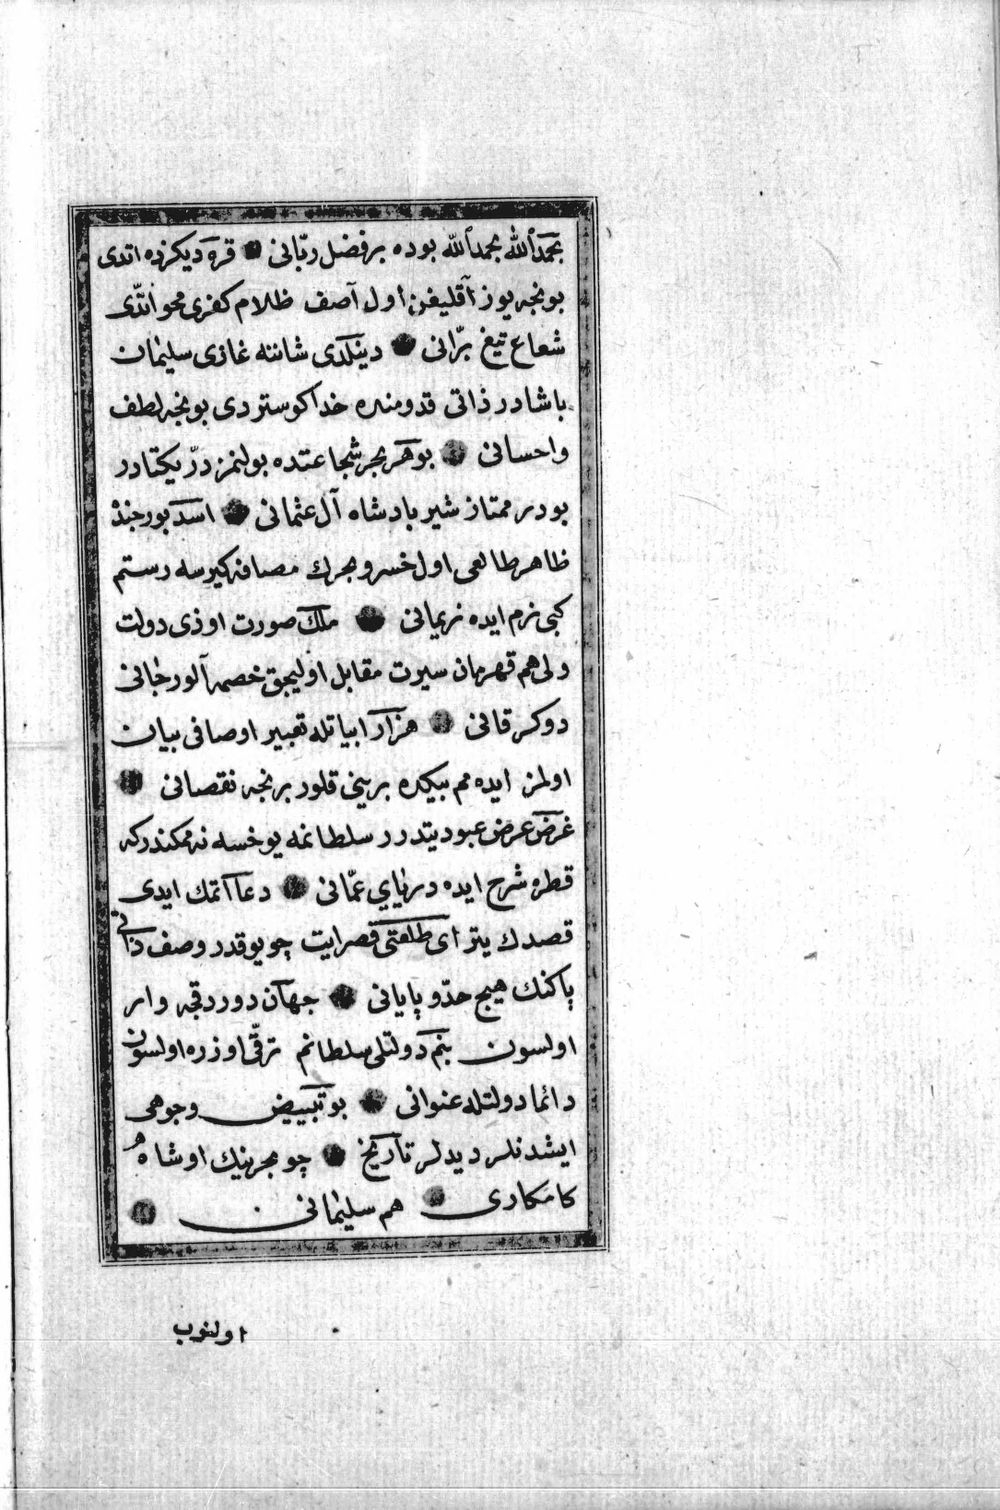 بحمدالله بحمدالله بوده بر فضل ربّانی قره دیكزده اتدی
بونجه یوز آقلیغن اول آصف ظلام كفری محو اتدّی
شعاع تیغ برّانی دینلدی شاننه غازی سلیمان
باشادر ذاتی قدومنده خدا كوستردی بونجه لطف
واحسانی بو هر بحر شجاعتده بولنمز درّ یكتادر
بودر ممتاز شیر بادشاه آل عثمانی اسد بورجنده
ظاهر طالعی اول خسرو بحرك مصافه كیرسه رستم
كبی نرم ایده نریمانی ملك صورت اوذی دولت
ولی هم قهرمان سیرت مقابل اولیجق خصمه آلور جانی
دوكر قانی هزار ابیاتله تعبیر اوصافی بیان
اولمز ایده مم بیكده برینی قلور بر نجه نقصانی
غرض عرض عبودیتدر سلطانمه یوخسه نه ممكندركه
قطره شرح ایده دریای عمّانی دعا اتمك ایدی
قصدك یتر ای طلعتی قصر ایت چو یوقدر وصف ذاتی
پاكنك هیچ حدّو پایانی جهان دوردقجه وار
اولسون بنم دولتلی سلطانم ترقّی اوزره اولسون
دائما دولتله عنوانی بو تبییض وجوهی
ایشدنلر دیدلر تاریخ چو بحرینك اوشاهُ
كامكاری هم سلیمانی
اولنوب